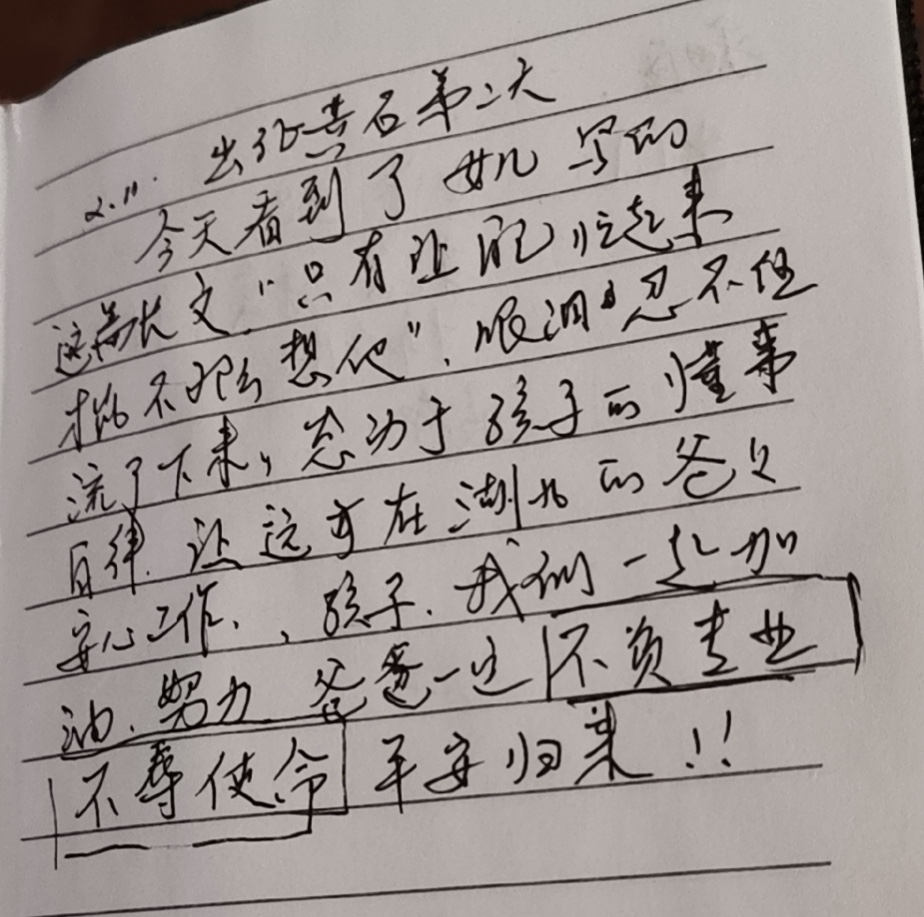 出征黄石第二天
2.11.
今天看到了 女儿 写的
这篇长文，"只有让自己忙起来
才能不那么想他"，眼泪忍不住
流了下来，感动于孩子的懂事
自律，让远方在湖北的爸爸
安心工作，，孩子，我们一起加
油，努力 爸爸一定 不负专业
不辱使命 平安归来!!